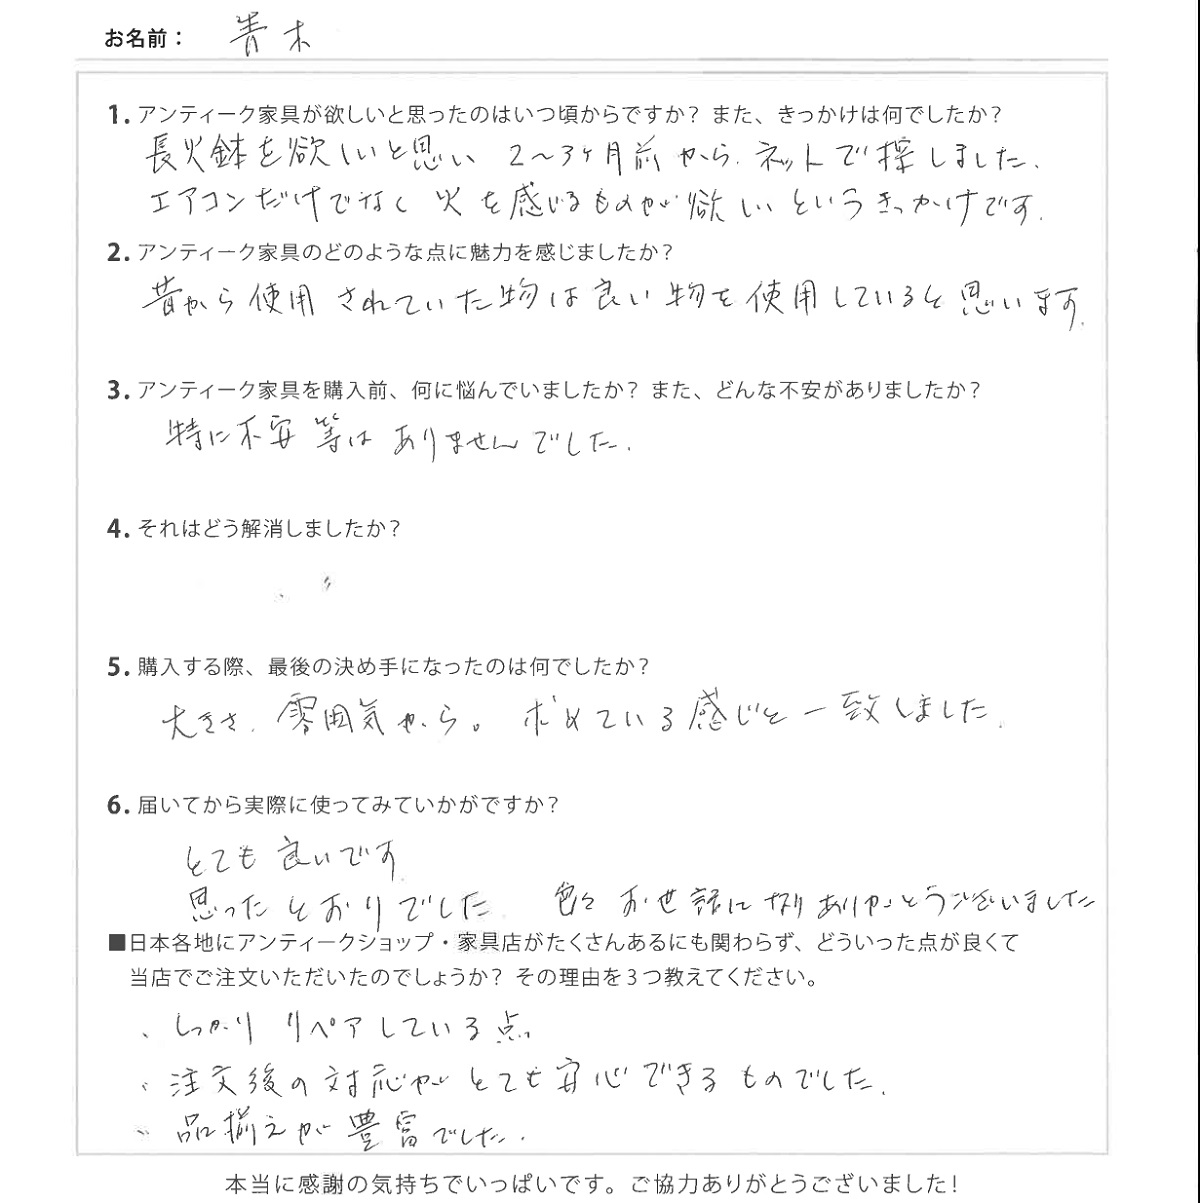 お名前： 青木
1. アンティーク家具が欲しいと思ったのはいつ頃からですか？ また、きっかけは何でしたか？
長火鉢を欲しいと思い 2〜3ヶ月前から、ネットで探しました。
エアコンだけでなく 火を感じるものが欲しいというきっかけです。
2. アンティーク家具のどのような点に魅力を感じましたか？
昔から使用されていた物は良い物を使用していると思います。
3. アンティーク家具を購入前、何に悩んでいましたか？ また、どんな不安がありましたか？
特に不安等はありませんでした。
4. それはどう解消しましたか？
5. 購入する際、最後の決め手になったのは何でしたか？
大きさ、雰囲気から。 求めている感じと一致しました。
6. 届いてから実際に使ってみていかがですか？
とても良いです。
思ったとおりでした。 色々お世話になりありがとうございました
■日本各地にアンティークショップ・家具店がたくさんあるにも関わらず、どういった点が良くて
当店でご注文いただいたのでしょうか？ その理由を３つ教えてください。
、しっかりリペアしている点。
、注文後の対応がとても安心できるものでした。
、品揃えが豊富でした。
本当に感謝の気持ちでいっぱいです。ご協力ありがとうございました！